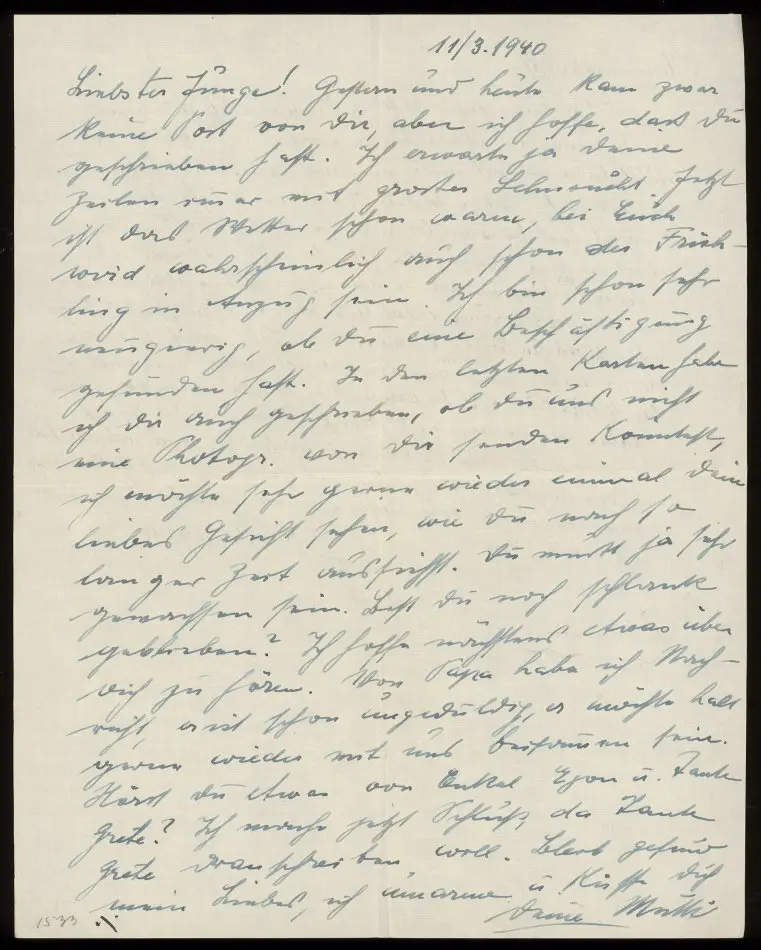 11/3.1940
Liebster Junge! Gestern und heute kam zwar
keine Post von dir, aber ich hoffe, dass du
geschrieben hast. Ich erwarte ja deine
Zeilen immer mit grosser Sehnsucht. Jetzt
ist das Wetter schon warm, bei Euch
wird wahrscheinlich auch schon der Früh-
ling in Anzug sein. Ich bin schon sehr
neugierig, ob du eine Beschäftigung
gefunden hast. In den letzten Karten habe
ich dir auch geschrieben, ob du uns nicht
eine Photogr. von dir senden könntest,
ich möchte sehr gerne wieder einmal dein
liebes Gesicht sehen, wie du nach so
langer Zeit aussiehst. Du musst ja sehr
gewachsen sein. Bist du noch schlank
geblieben? Ich hoffe nächstens etwas über
dich zu hören. Von Papa habe ich Nach-
richt, er ist schon ungeduldig, er möchte halt
gerne wieder mit uns beisammen sein.
Hörst du etwas von Onkel Egon u. Tante
Grete? Ich mache jetzt Schluß, da Tante
Grete dranschreiben will. Bleib gesund
mein Liebes, ich umarme u. küsse dich
deine Mutti
1533